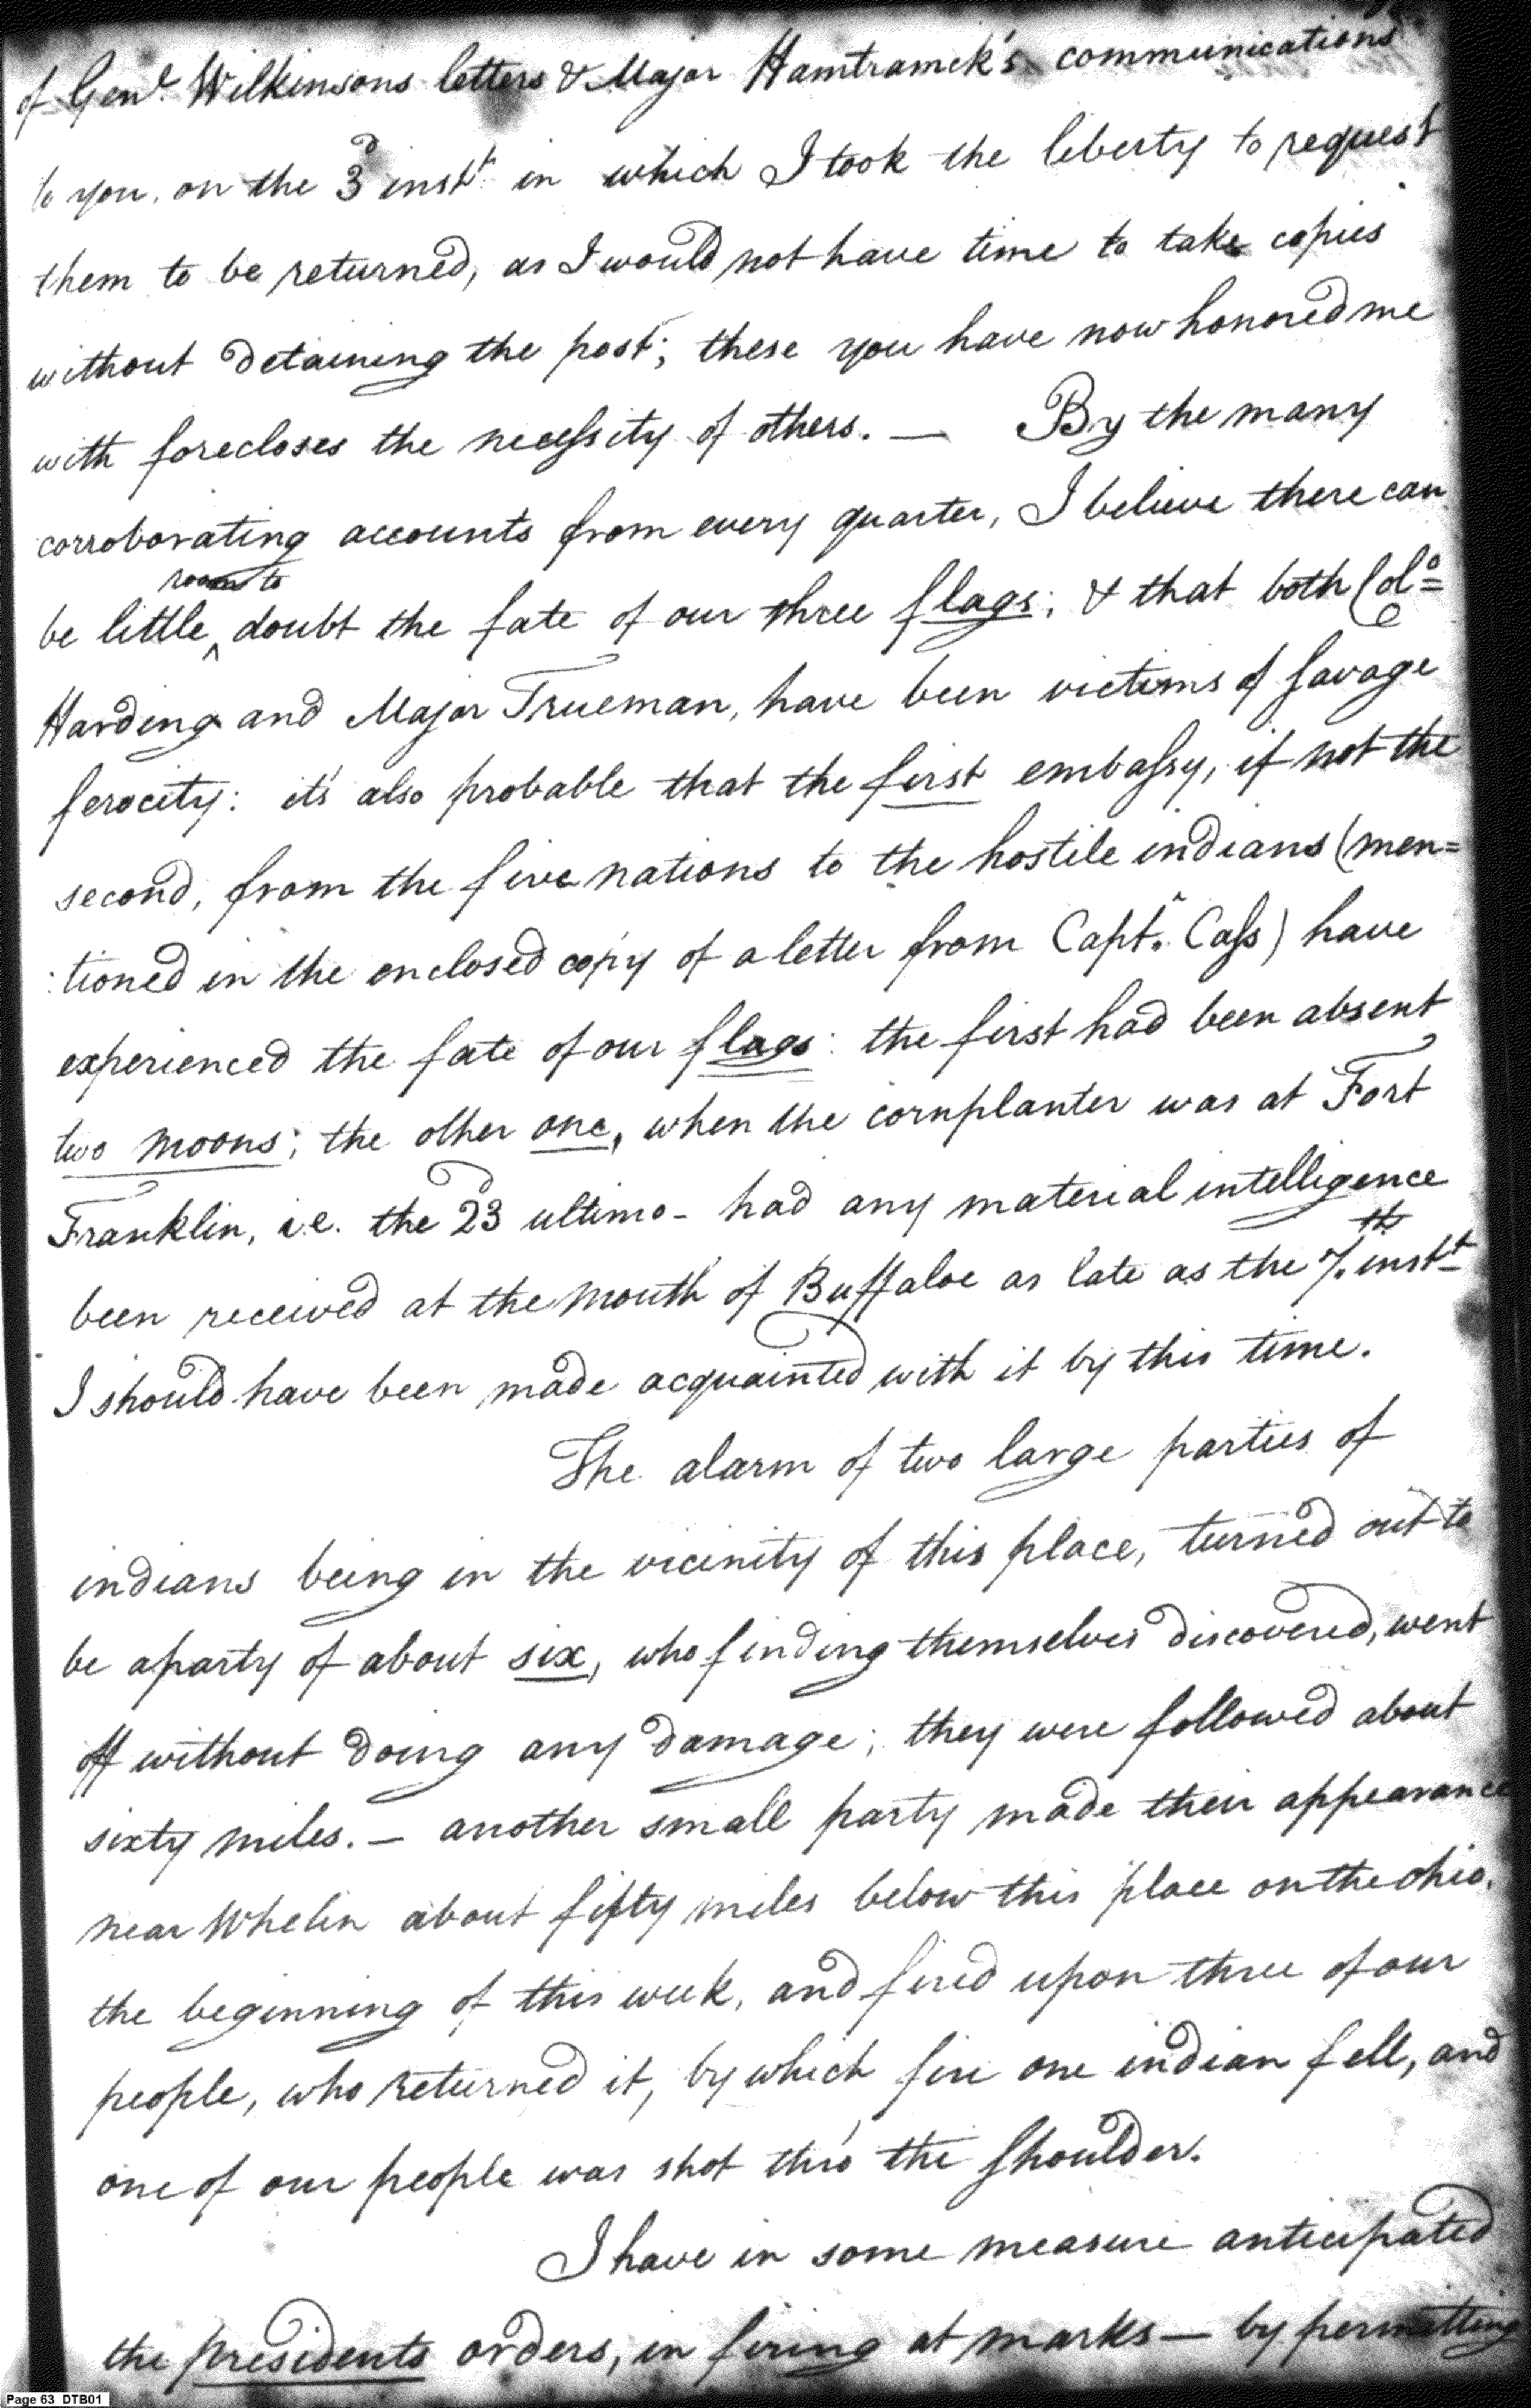 of Genl. Wilkinsons letters & Major Hamtramck's communications
to you, on the 3d instt. in which I took the liberty to request
them to be returned, as I would not have time to take copies
without detaining the post; these you have now honored me
with forecloses the necessity of others. — By the many
corroborating accounts from every quarter, I believe there can
room to
be little ^ doubt the fate of our three flags; & that both Colo=
Harding and Major Trueman, have been victims of savage
ferocity: it's also probable that the first embassy, if not the
second, from the five nations to the hostile indians (men=
:tioned in the enclosed copy of a letter from Captn. Cass) have
experienced the fate of our flags: the first had been absent
two moons; the other one, when the cornplanter was at Fort
Franklin, i.e. the 23d ultimo - had any material intelligence
been received at the mouth of Buffaloe as late as the 7th. instt
I should have been made acquainted with it by this time.
The alarm of two large parties of
indians being in the vicinity of this place, turned out to
be a party of about six, who finding themselves discovered, went
off without doing any damage; they were followed about
sixty miles. — another small party made their appearance
near Whelin about fifty miles below this place on the ohio,
the beginning of this week, and fired upon three of our
people, who returned it, by which fire one indian fell, and
one of our people was shot thro' the shoulder.
I have in some measure anticipated
the presidents orders, in firing at marks — by permitting
Page 63 DTB01